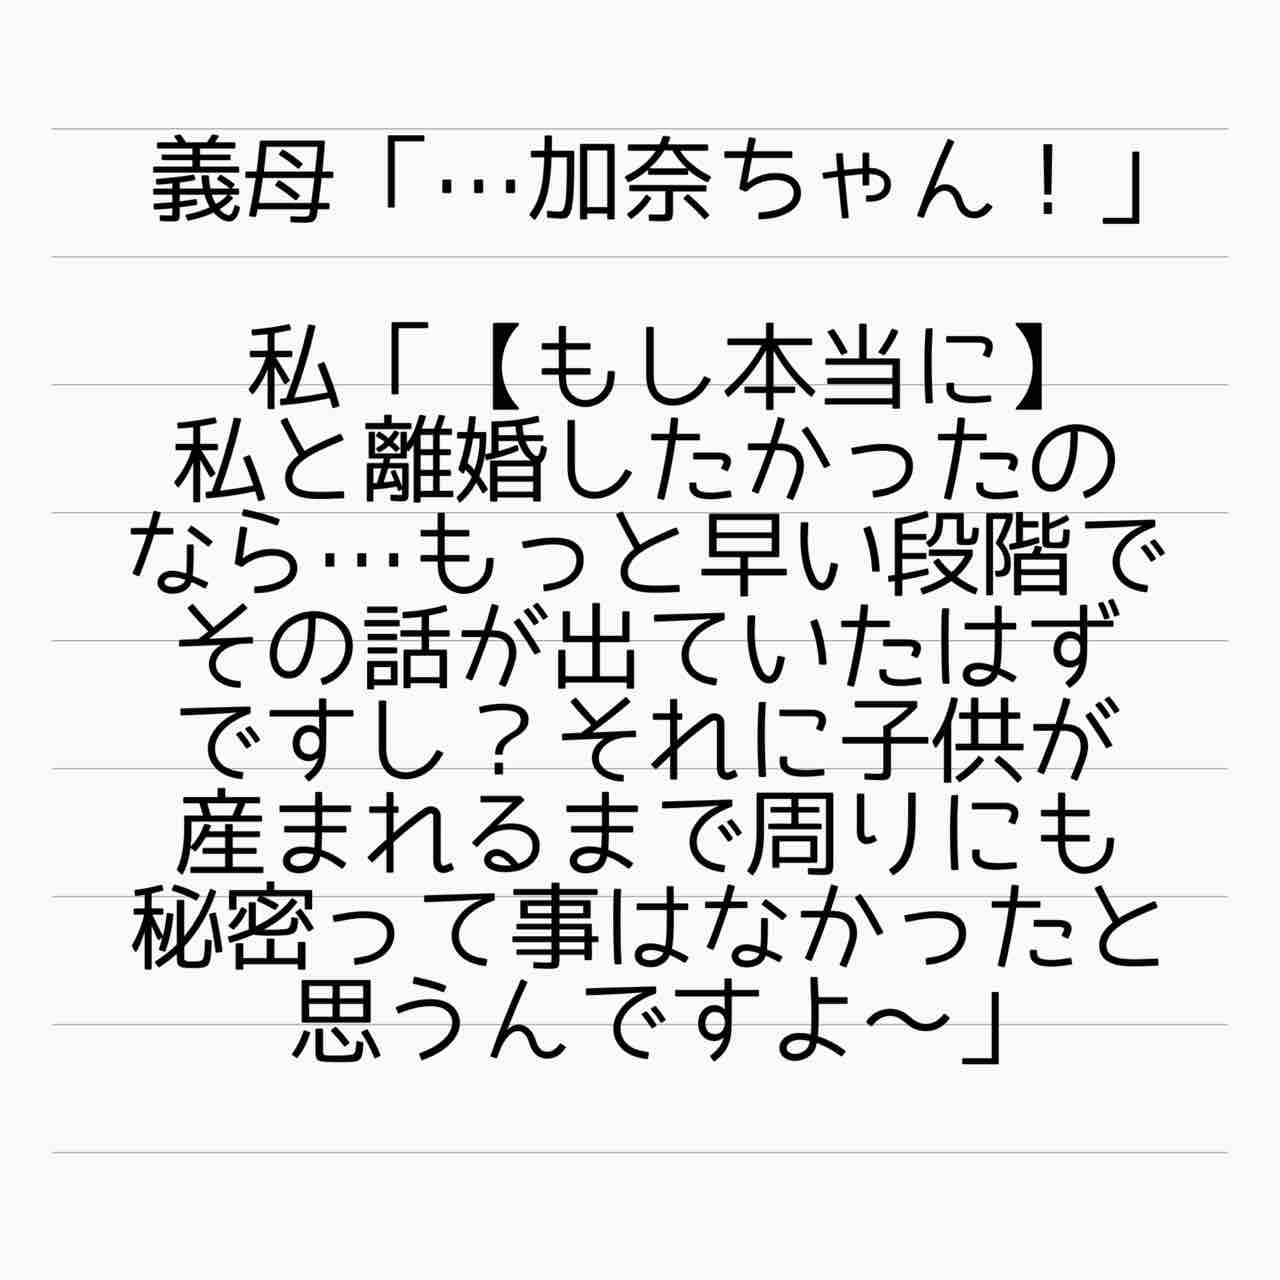 義母「…加奈ちゃん！」
私「【もし本当に】
私と離婚したかったの
なら…もっと早い段階で
その話が出ていたはず
ですし？それに子供が
産まれるまで周りにも
秘密って事はなかったと
思うんですよ〜」